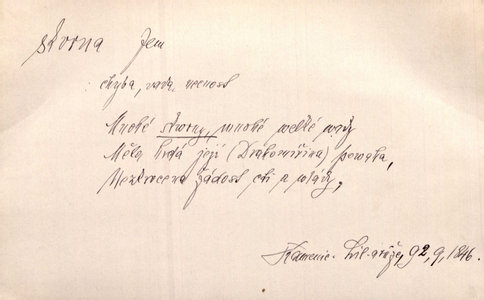 skvrna fem
: chyba, vada, necnost
Mnohé skvrny, mnohé welké wady
Měla hrdá její (Drahomířina) powaha,
Nezkrocená žádost cti a wlády,
Kamenic. Lil. a růže, 92, 9, 1846.